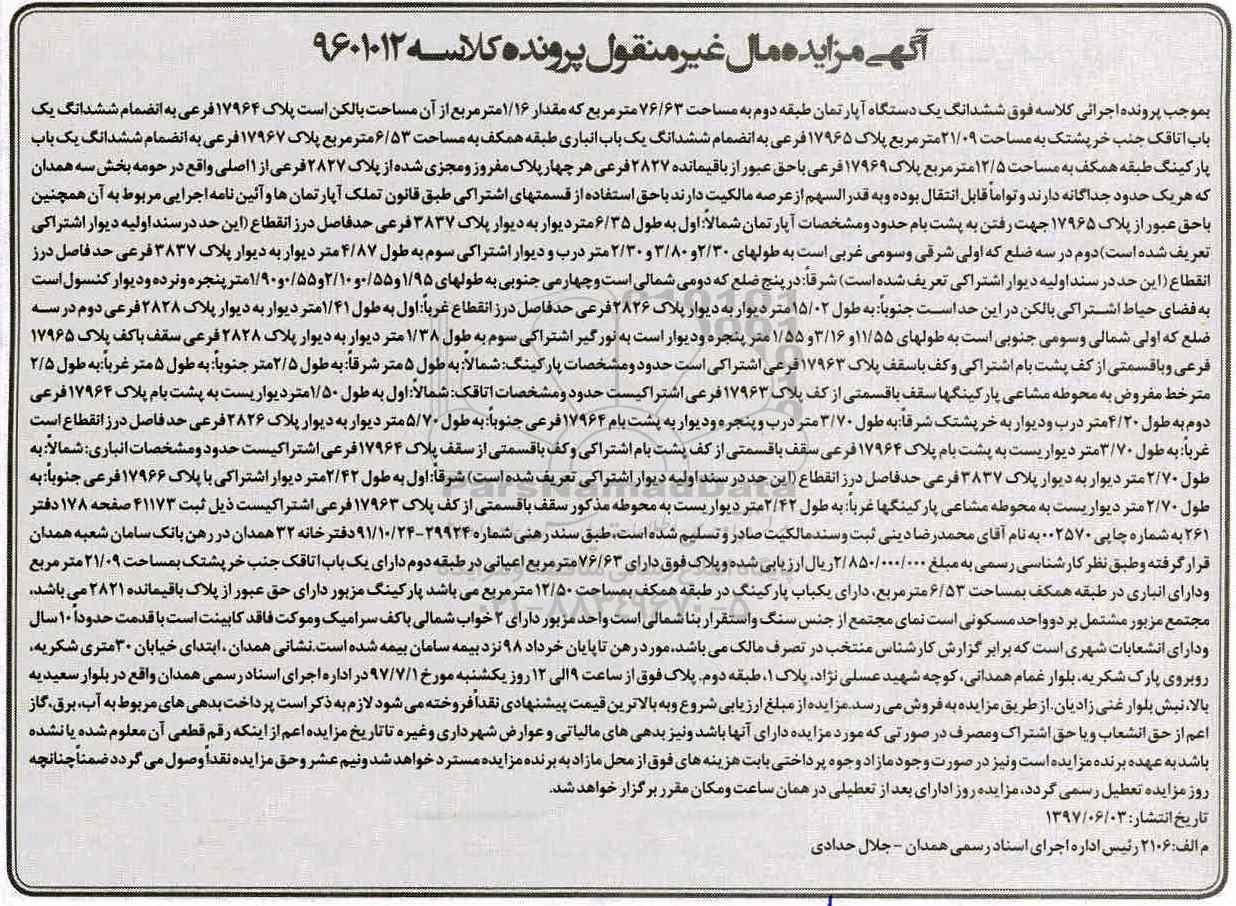 آگهی مزایده مال غیرمنقول پرونده کلاسه ۹۶۰۱۰۱۲
بموجب پرونده اجرائی کلاسه فوق ششدانگ یک دستگاه آپارتمان طبقه دوم به مساحت ۷۶/۶۳ متر مربع که مقدار ۱/۱۶ متر مربع از آن مساحت بالکن است پلاک ۱۷۹۶۴ فرعی به انضمام ششدانگ یک
باب اتاقک جنب خرپشتک به مساحت ۲۱/۰۹ متر مربع پلاک ۱۷۹۶۵ فرعی به انضمام ششدانگ یک باب انباری طبقه همکف به مساحت ۶/۵۳ متر مربع پلاک ۱۷۹۶۷ فرعی به انضمام ششدانگ یک باب
پارکینگ طبقه همکف به مساحت ۱۲/۵ متر مربع پلاک ۱۷۹۶۹ فرعی با حق عبور از باقیمانده ۲۸۲۷ فرعی هر چهار پلاک مفروز و مجزی شده از پلاک ۲۸۲۷ فرعی از ۱ اصلی واقع در حومه بخش سه همدان
که هر یک حدود جداگانه دارند و تواماً قابل انتقال بوده و به قدر السهم از عرصه مالکیت دارند با حق استفاده از قسمتهای اشتراکی طبق قانون تملک آپارتمان ها و آئین نامه اجرایی مربوط به آن همچنین
باحق عبور از پلاک ۱۷۹۶۵ جهت رفتن به پشت بام حدود ومشخصات آپارتمان شمالاً: اول به طول ۶/۳۵ متر دیوار به دیوار پلاک ۳۸۳۷ فرعی حدفاصل درز انقطاع (این حد در سند اولیه دیوار اشتراکی
تعریف شده است) دوم در سه ضلع که اولی شرقی وسومی غربی است به طولهای ۲/۳۰ و ۳/۸۰ و ۲/۳۰ متر درب و دیوار اشتراکی سوم به طول ۴/۸۷ متر دیوار به دیوار پلاک ۳۸۳۷ فرعی حدفاصل درز
انقطاع (این حد در سند اولیه دیوار اشتراکی تعریف شده است) شرقاً: در پنج ضلع که دومی شمالی است وچهارمی جنوبی به طولهای ۱/۹۵ و ۰/۵۵ و ۲/۱۰ و ۰/۵۵ و ۱/۹۰ متر پنجره ونرده ودیوار کنسول است
به فضای حیاط اشتراکی بالکن در این حد است جنوباً: به طول ۱۵/۰۲ متر دیوار به دیوار پلاک ۲۸۲۶ فرعی حدفاصل درز انقطاع غرباً: اول به طول ۱/۴۱ متر دیوار به دیوار پلاک ۲۸۲۸ فرعی دوم در سه
ضلع که اولی شمالی وسومی جنوبی است به طولهای ۱۱/۵۵ و ۳/۱۶ و ۱/۵۵ متر پنجره ودیوار است به نورگیر اشتراکی سوم به طول ۱/۳۸ متر دیوار به دیوار پلاک ۲۸۲۸ فرعی سقف باکف پلاک ۱۷۹۶۵
فرعی وباقسمتی از کف پشت بام اشتراکی وکف باسقف پلاک ۱۷۹۶۳ فرعی اشتراکی است حدود ومشخصات پارکینگ: شمالاً: به طول ۵ متر شرقاً: به طول ۲/۵ متر جنوباً: به طول ۵ متر غرباً: به طول ۲/۵
متر خط مفروض به محوطه مشاعی پارکینگها سقف باقسمتی از کف پلاک ۱۷۹۶۳ فرعی اشتراکیست حدود ومشخصات اتاقک: شمالاً: اول به طول ۱/۵۰ متر دیواریست به پشت بام پلاک ۱۷۹۶۴ فرعی
دوم به طول ۴/۲۰ متر درب ودیوار به خرپشتک شرقاً: به طول ۳/۷۰ متر درب و پنجره ودیوار به پشت بام ۱۷۹۶۴ فرعی جنوباً: به طول ۵/۷۰ متر دیوار به دیوار پلاک ۲۸۲۶ فرعی حدفاصل درز انقطاع است
غرباً: به طول ۳/۷۰ متر دیواریست به پشت بام پلاک ۱۷۹۶۴ فرعی سقف باقسمتی از کف پشت بام اشتراکی و کف باقسمتی از سقف پلاک ۱۷۹۶۴ فرعی اشتراکیست حدود ومشخصات انباری: شمالاً: به
طول ۲/۷۰ متر دیوار به دیوار پلاک ۳۸۳۷ فرعی حدفاصل درز انقطاع (این حد در سند اولیه دیوار اشتراکی تعریف شده است) شرقاً: اول به طول ۲/۴۲ متر دیوار اشتراکی با پلاک ۱۷۹۶۶ فرعی جنوباً: به
طول ۲/۷۰ متر دیواریست به محوطه مشاعی پارکینگها غرباً: به طول ۲/۴۲ متر دیواریست به محوطه مذکور سقف باقسمتی از کف پلاک ۱۷۹۶۳ فرعی اشتراکیست ذیل ثبت ۴۱۱۷۳ صفحه ۱۷۸ دفتر
۲۶۱ به شماره چاپی ۰۰۲۵۷۰ به نام آقای محمدرضا دینی ثبت وسند مالکیت صادر و تسلیم شده است، طبق سند رهنی شماره ۲۹۹۲۴-۹۱/۱۰/۲۴ دفترخانه ۳۲ همدان در رهن بانک سامان شعبه همدان
قرار گرفته وطبق نظر کارشناسی رسمی به مبلغ ۲/۸۵۰/۰۰۰/۰۰۰ ریال ارزیابی شده و پلاک فوق دارای ۷۶/۶۳ متر مربع اعیانی در طبقه دوم دارای یک باب اتاقک جنب خرپشتک بمساحت ۲۱/۰۹ متر مربع
ودارای انباری در طبقه همکف بمساحت ۶/۵۳ متر مربع، دارای یکباب پارکینگ در طبقه همکف بمساحت ۱۲/۵۰ متر مربع می باشد پارکینگ مزبور دارای حق عبور از پلاک باقیمانده ۲۸۲۱ می باشد،
مجتمع مزبور مشتمل بر دو واحد مسکونی است نمای مجتمع از جنس سنگ واستقرار بنا شمالی است واحد مزبور دارای ۲ خواب شمالی باکف سرامیک وموکت فاقد کابینت است باقدمت حدوداً ۱۰ سال
ودارای انشعابات شهری است که برابر گزارش کارشناس منتخب در تصرف مالک می باشد، مورد رهن تا پایان خرداد ۹۸ نزد بیمه سامان بیمه شده است. نشانی همدان، ابتدای خیابان ۳۰ متری شکریه،
روبروی پارک شکریه، بلوار غمام همدانی، کوچه شهید عسلی نژاد، پلاک ۱، طبقه دوم. پلاک فوق از ساعت ۹ الی ۱۲ روز یکشنبه مورخ ۹۷/۷/۱ در اداره اجرای اسناد رسمی همدان واقع در بلوار سعیدیه
بالا، نبش بلوار غنی زادیان. از طریق مزایده به فروش می رسد. مزایده از مبلغ ارزیابی شروع وبه بالاترین قیمت پیشنهادی نقداً فروخته می شود لازم به ذکر است پرداخت بدهی های مربوط به آب، برق، گاز
اعم از حق انشعاب ویا حق اشتراک ومصرف در صورتی که مورد مزایده دارای آنها باشد ونیز بدهی های مالیاتی و عوارض شهرداری وغیره تا تاریخ مزایده اعم از اینکه رقم قطعی آن معلوم شده یا نشده
باشد به عهده برنده مزایده است ونیز در صورت وجود مازاد وجوه پرداختی بابت هزینه های فوق از محل مازاد به برنده مزایده مسترد خواهد شد ونیم عشر وحق مزایده نقداً وصول می گردد ضمناً چنانچه
روز مزایده تعطیل رسمی گردد، مزایده روز اداری بعد از تعطیلی در همان ساعت ومکان مقرر برگزار خواهد شد.
تاریخ انتشار: ۱۳۹۷/۰۶/۰۳
م الف: ۲۱۰۶ رئیس اداره اجرای اسناد رسمی همدان - جلال حدادی
ParsNamadData
۰۲۱-۸۸۳۴۹۶۷۰-۵